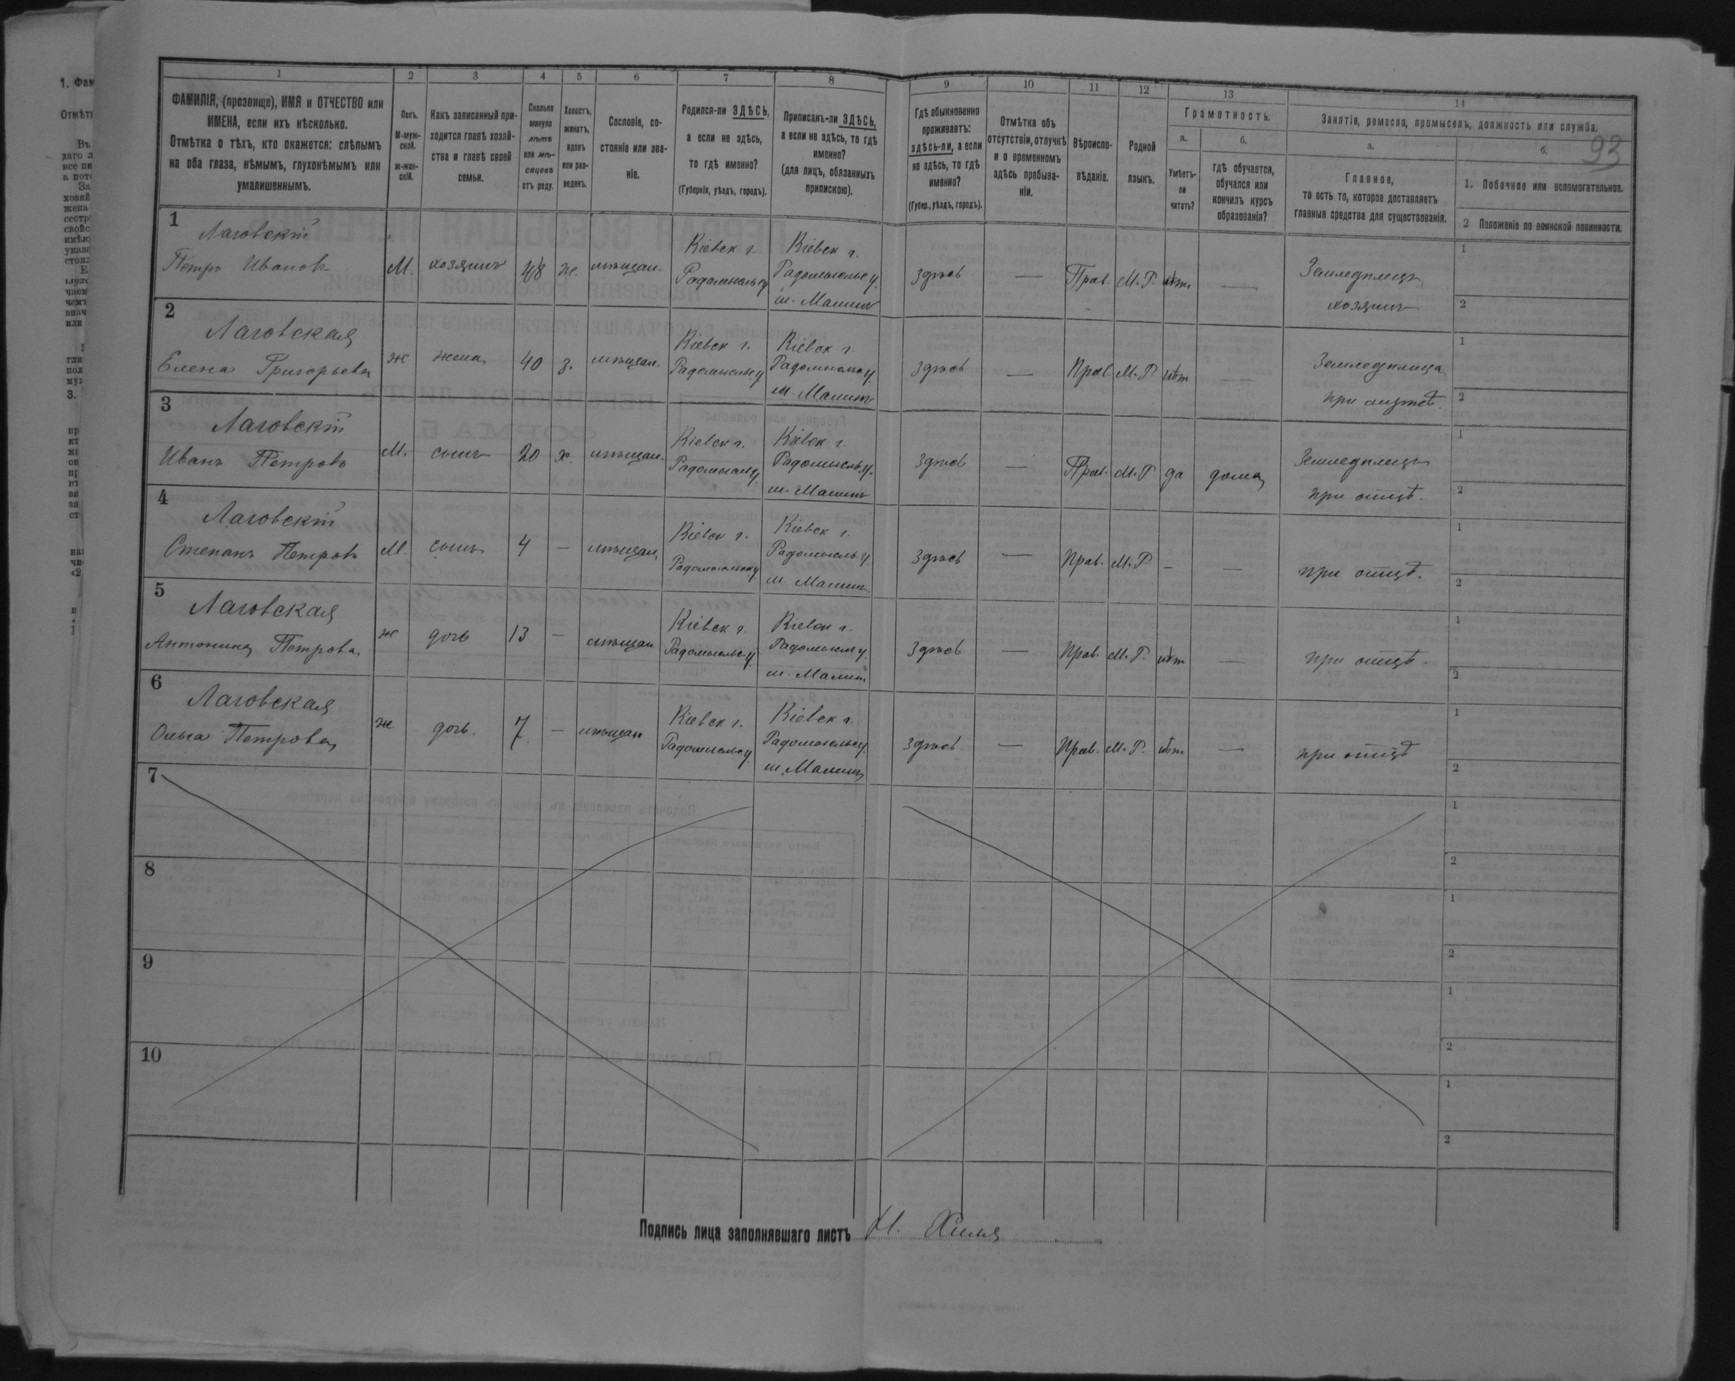 93
1 2 3 4 5 6 7 8 9 10 11 12 13 14
ФАМИЛІЯ, (прозвище), ИМЯ и ОТЧЕСТВО или
ИМЕНА, если ихъ нѣсколько.
Отмѣтка о тѣхъ, кто окажется: слѣпымъ
на оба глаза, нѣмымъ, глухонѣмымъ или
умалишеннымъ.
Полъ.
М-муж-
ской.
ж-жен-
скій.
Какъ записанный при-
ходится главѣ хозяй-
ства и главѣ своей
семьи.
Сколько
минуло
лѣтъ
или мѣ-
сяцевъ
отъ роду.
Холостъ,
женатъ,
вдовъ
или раз-
веденъ.
Сословіе, со-
стояніе или зва-
ніе.
Родился-ли ЗДѢСЬ,
а если не здѣсь,
то гдѣ именно?
(Губернія, уѣздъ, городъ).
Приписанъ-ли ЗДѢСЬ,
а если не здѣсь, то гдѣ
именно?
(для лицъ, обязанныхъ
припискою).
Гдѣ обыкновенно
проживаетъ:
здѣсь-ли, а если
не здѣсь, то гдѣ
именно?
(Губер., уѣздъ, городъ).
Отмѣтка объ
отсутствіи, отлучкѣ
и о временномъ
здѣсь пребыва-
ніи.
Вѣроиспо-
вѣданіе.
Родной
языкъ.
Грамотность.
а.
Умѣетъ-
ли
читать?
б.
гдѣ обучается,
обучался или
кончилъ курсъ
образованія?
Занятіе, ремесло, промыселъ, должность или служба.
а.
Главное,
то есть то, которое доставляетъ
главныя средства для существованія.
б.
1. Побочное или вспомогательное.
2 Положеніе по воинской повинности.
1
Лаговскій
Петръ Ивановъ М. хозяинъ 48 ж. мѣщан. Кіевск г. Радомысльс у. Кіевск г. Радомысльс у. м. Малинъ здѣсь — Прав. М.Р. нѣт — Земледѣлецъ хозяинъ
1
2
2
Лаговская
Елена Григорьева ж жена 40 з. мѣщан. Кіевск г. Радомысльс у Кіевск г. Радомысльс у. м. Малинъ здѣсь — Прав. М.Р. нѣт — Земледѣлица при мужѣ.
1
2
3
Лаговскій
Иванъ Петровъ М. сынъ 20 х. мѣщан. Кіевск г. Радомысльс у. Кіевск г. Радомысльс у. м. Малинъ здѣсь — Прав. М.Р да дома Земледѣлецъ при отцѣ.
1
2
4
Лаговскій
Степанъ Петровъ М. сынъ 4 — мѣщан. Кіевск г. Радомысльс у. Кіевск г. Радомысльс у. м. Малинъ здѣсь — Прав. М.Р. — — при отцѣ.
1
2
5
Лаговская
Антонина Петрова ж дочь 13 — мѣщан. Кіевск г. Радомысльс у. Кіевск г. Радомысльс у. м. Малинъ здѣсь — Прав. М.Р. нѣт — при отцѣ.
1
2
6
Лаговская
Ольга Петрова ж дочь. 7 — мѣщан Кіевск г. Радомысльс у. Кіевск г. Радомысльс у. м. Малинъ здѣсь — Прав. М.Р. нѣт — при отцѣ
1
2
7
1
2
8
1
2
9
1
2
10
1
2
Подпись лица заполнявшаго листъ